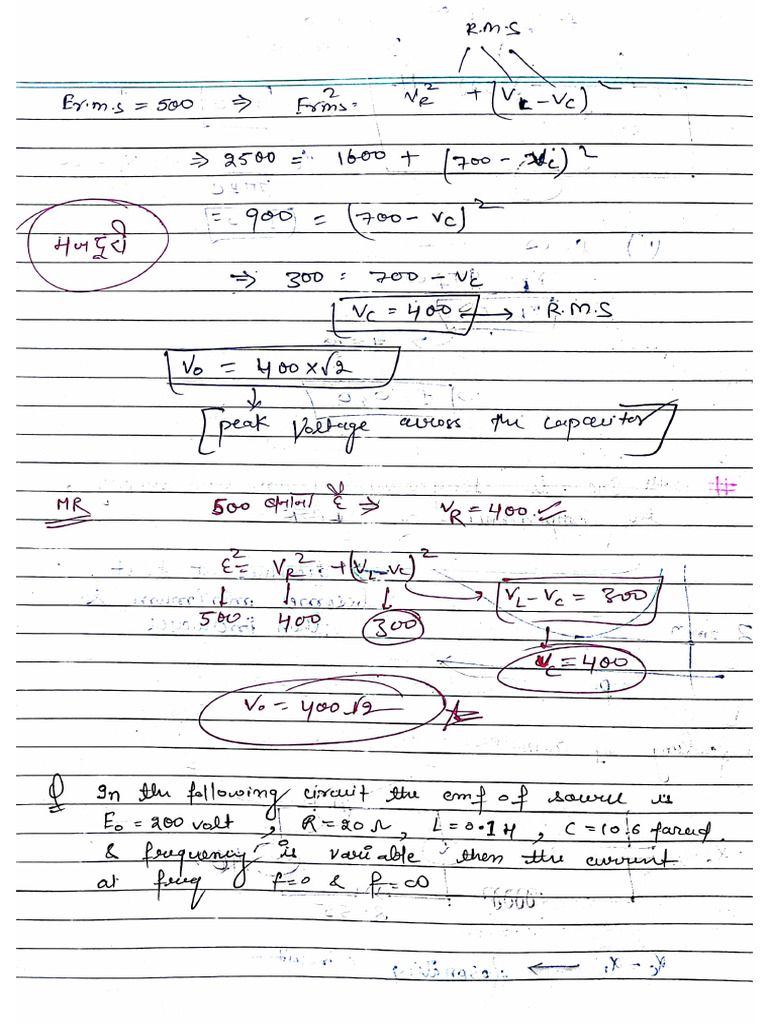 R.M.S
Er.m.s = 500 ⇒ Erms² = VR² + (VL – VC)²
⇒ 2500 = 1600 + (700 – Vc)²
= 900 = (700 – VC)²
मजदूरी
⇒ 300 = 700 – VC
VC = 400 → R.M.S
V₀ = 400×√2
↓
[peak Voltage across the capacitor]
MR 500 वाला ε ⇒ VR = 400 ✓
ε² = VR² + (VL – VC)² → VL – VC = 300
↓ ↓ ↓
500 400 300
↓
VC = 400
V₀ = 400√2
Q In the following circuit the emf of source is
E₀ = 200 volt, R = 20 Ω, L = 0.1 H, C = 10.6 farad.
& frequency is variable then the current
at freq f=0 & f=∞